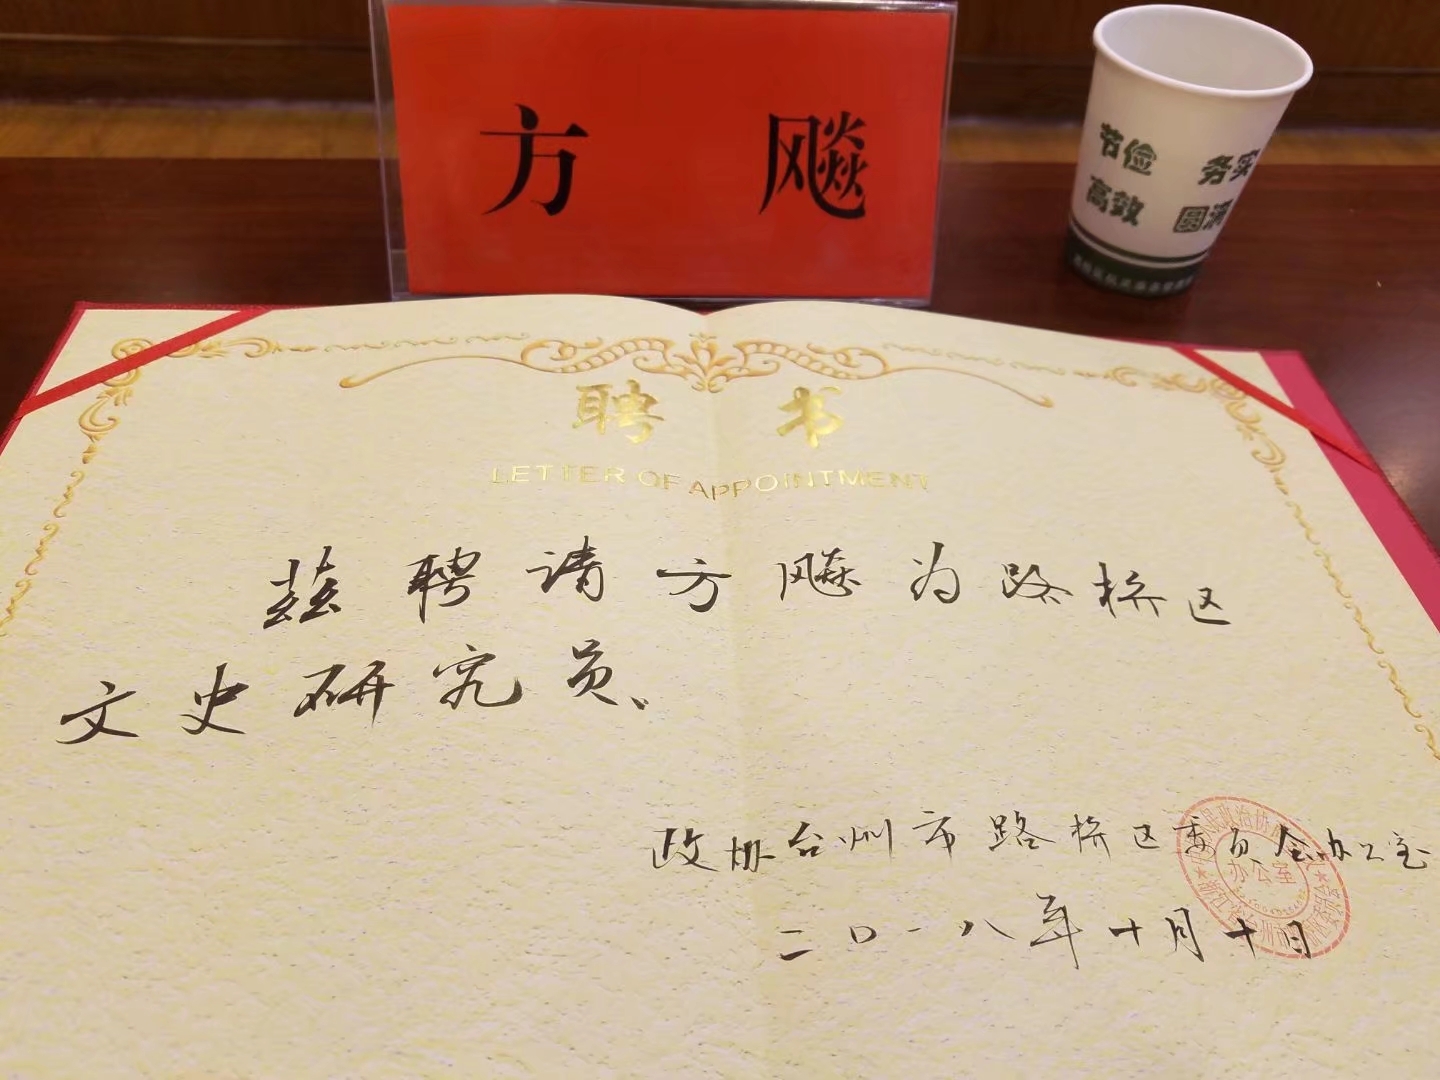 方 飚
节俭 务实
高效 圆满
聘 书
LETTER OF APPOINTMENT
兹聘请方飚为路桥区
文史研究员、
政协台州市路桥区委员会办公室
办公室
二〇一八年十月十日